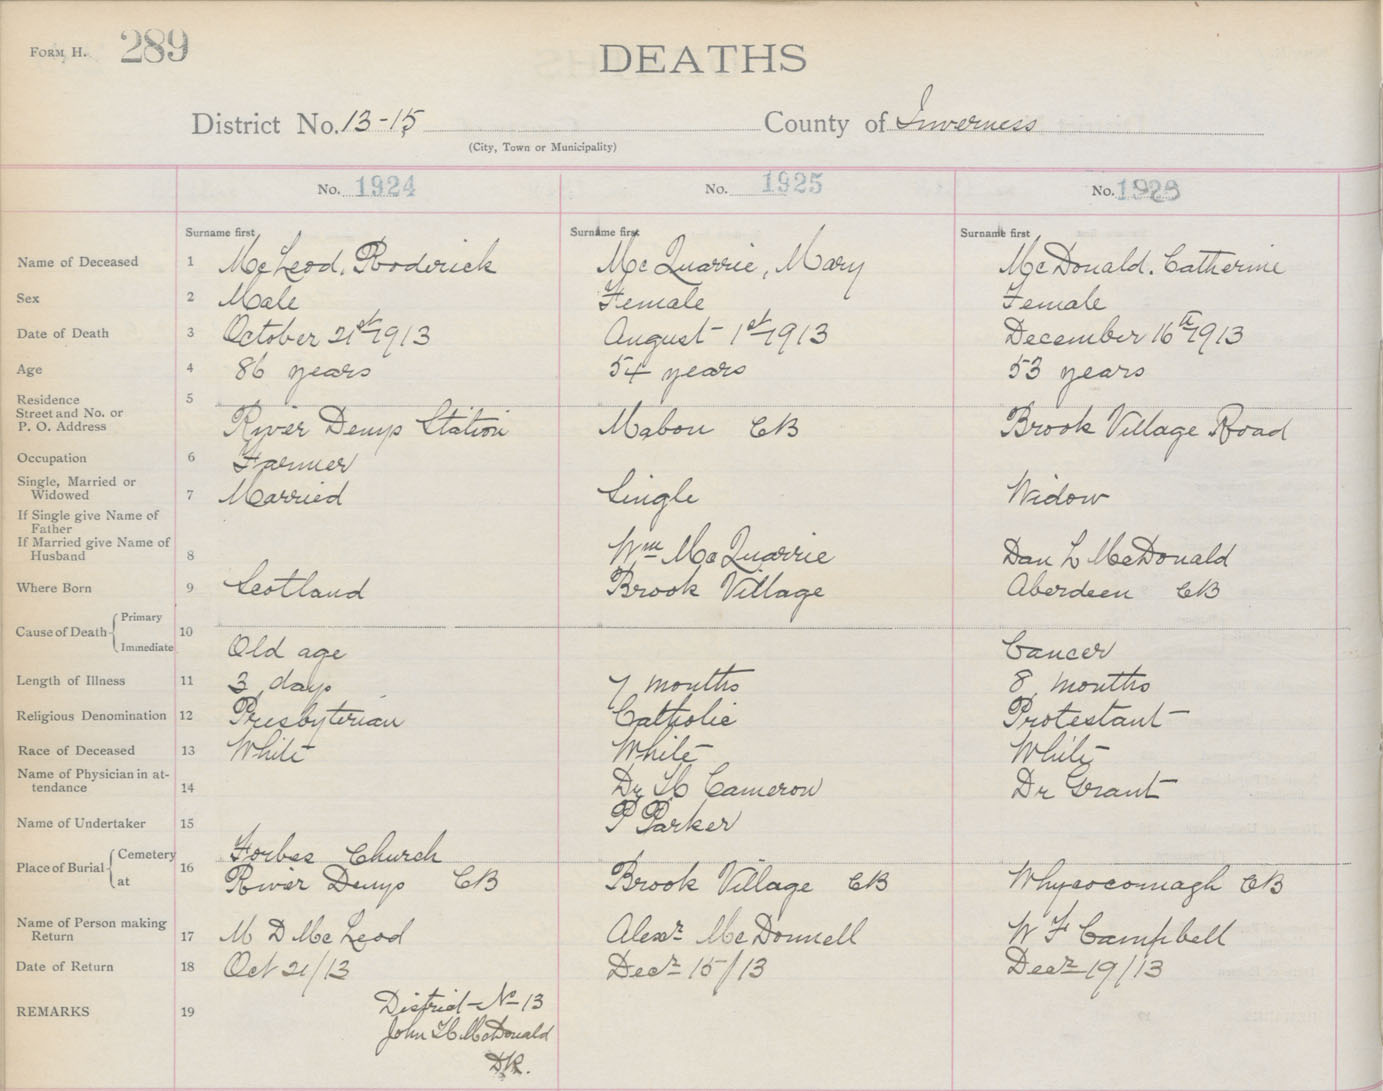 FORM H. 289
DEATHS
District No. 13-15 County of Inverness
(City, Town or Municipality)
No. 1924 No. 1925 No. 1926
Surname first Surname first Surname first
Name of Deceased 1 McLeod, Roderick McQuarrie, Mary McDonald, Catherine
Sex 2 Male Female Female
Date of Death 3 October 21st 1913 August 1st 1913 December 16th 1913
Age 4 86 years 54 years 53 years
Residence 5
Street and No. or
P. O. Address River Denys Station Mabou CB Brook Village Road
Occupation 6 Farmer
Single, Married or
Widowed 7 Married Single Widow
If Single give Name of
Father
If Married give Name of
Husband 8 Wm McQuarrie Dan L McDonald
Where Born 9 Scotland Brook Village Aberdeen CB
Cause of Death Primary 10
Immediate Old age Cancer
Length of Illness 11 3 days 7 months 8 months
Religious Denomination 12 Presbyterian Catholic Protestant
Race of Deceased 13 White White White
Name of Physician in at-
tendance 14 Dr H Cameron Dr Grant
Name of Undertaker 15 P Parker
Place of Burial Cemetery 16 Forbes Church
at River Denys CB Brook Village CB Whycocomagh CB
Name of Person making
Return 17 M D McLeod Alexr McDonnell W F Campbell
Date of Return 18 Oct 21/13 Decr 15/13 Decr 19/13
REMARKS 19 District No 13
John H McDonald
D.R.